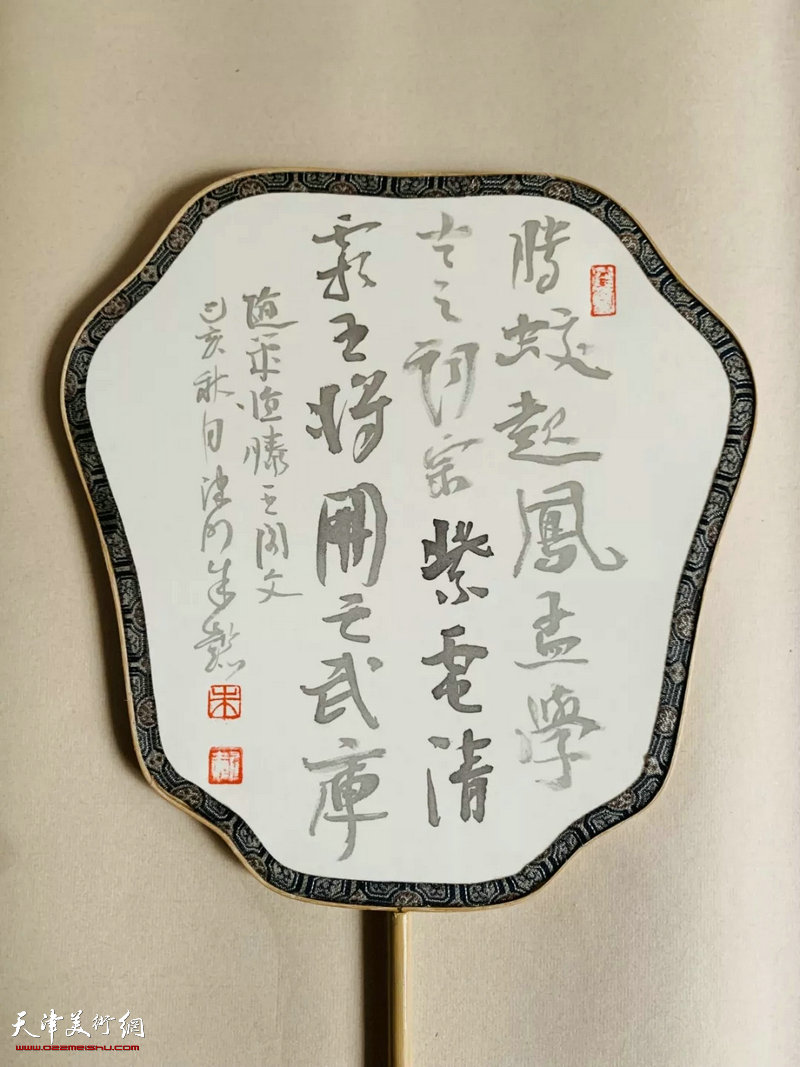 騰蛟起鳳孟學
士之詞宗紫電清
霜王將軍之武庫
滕王阁文
己亥秋月津门朱懿
朱
天津美術網
www.022meishu.com